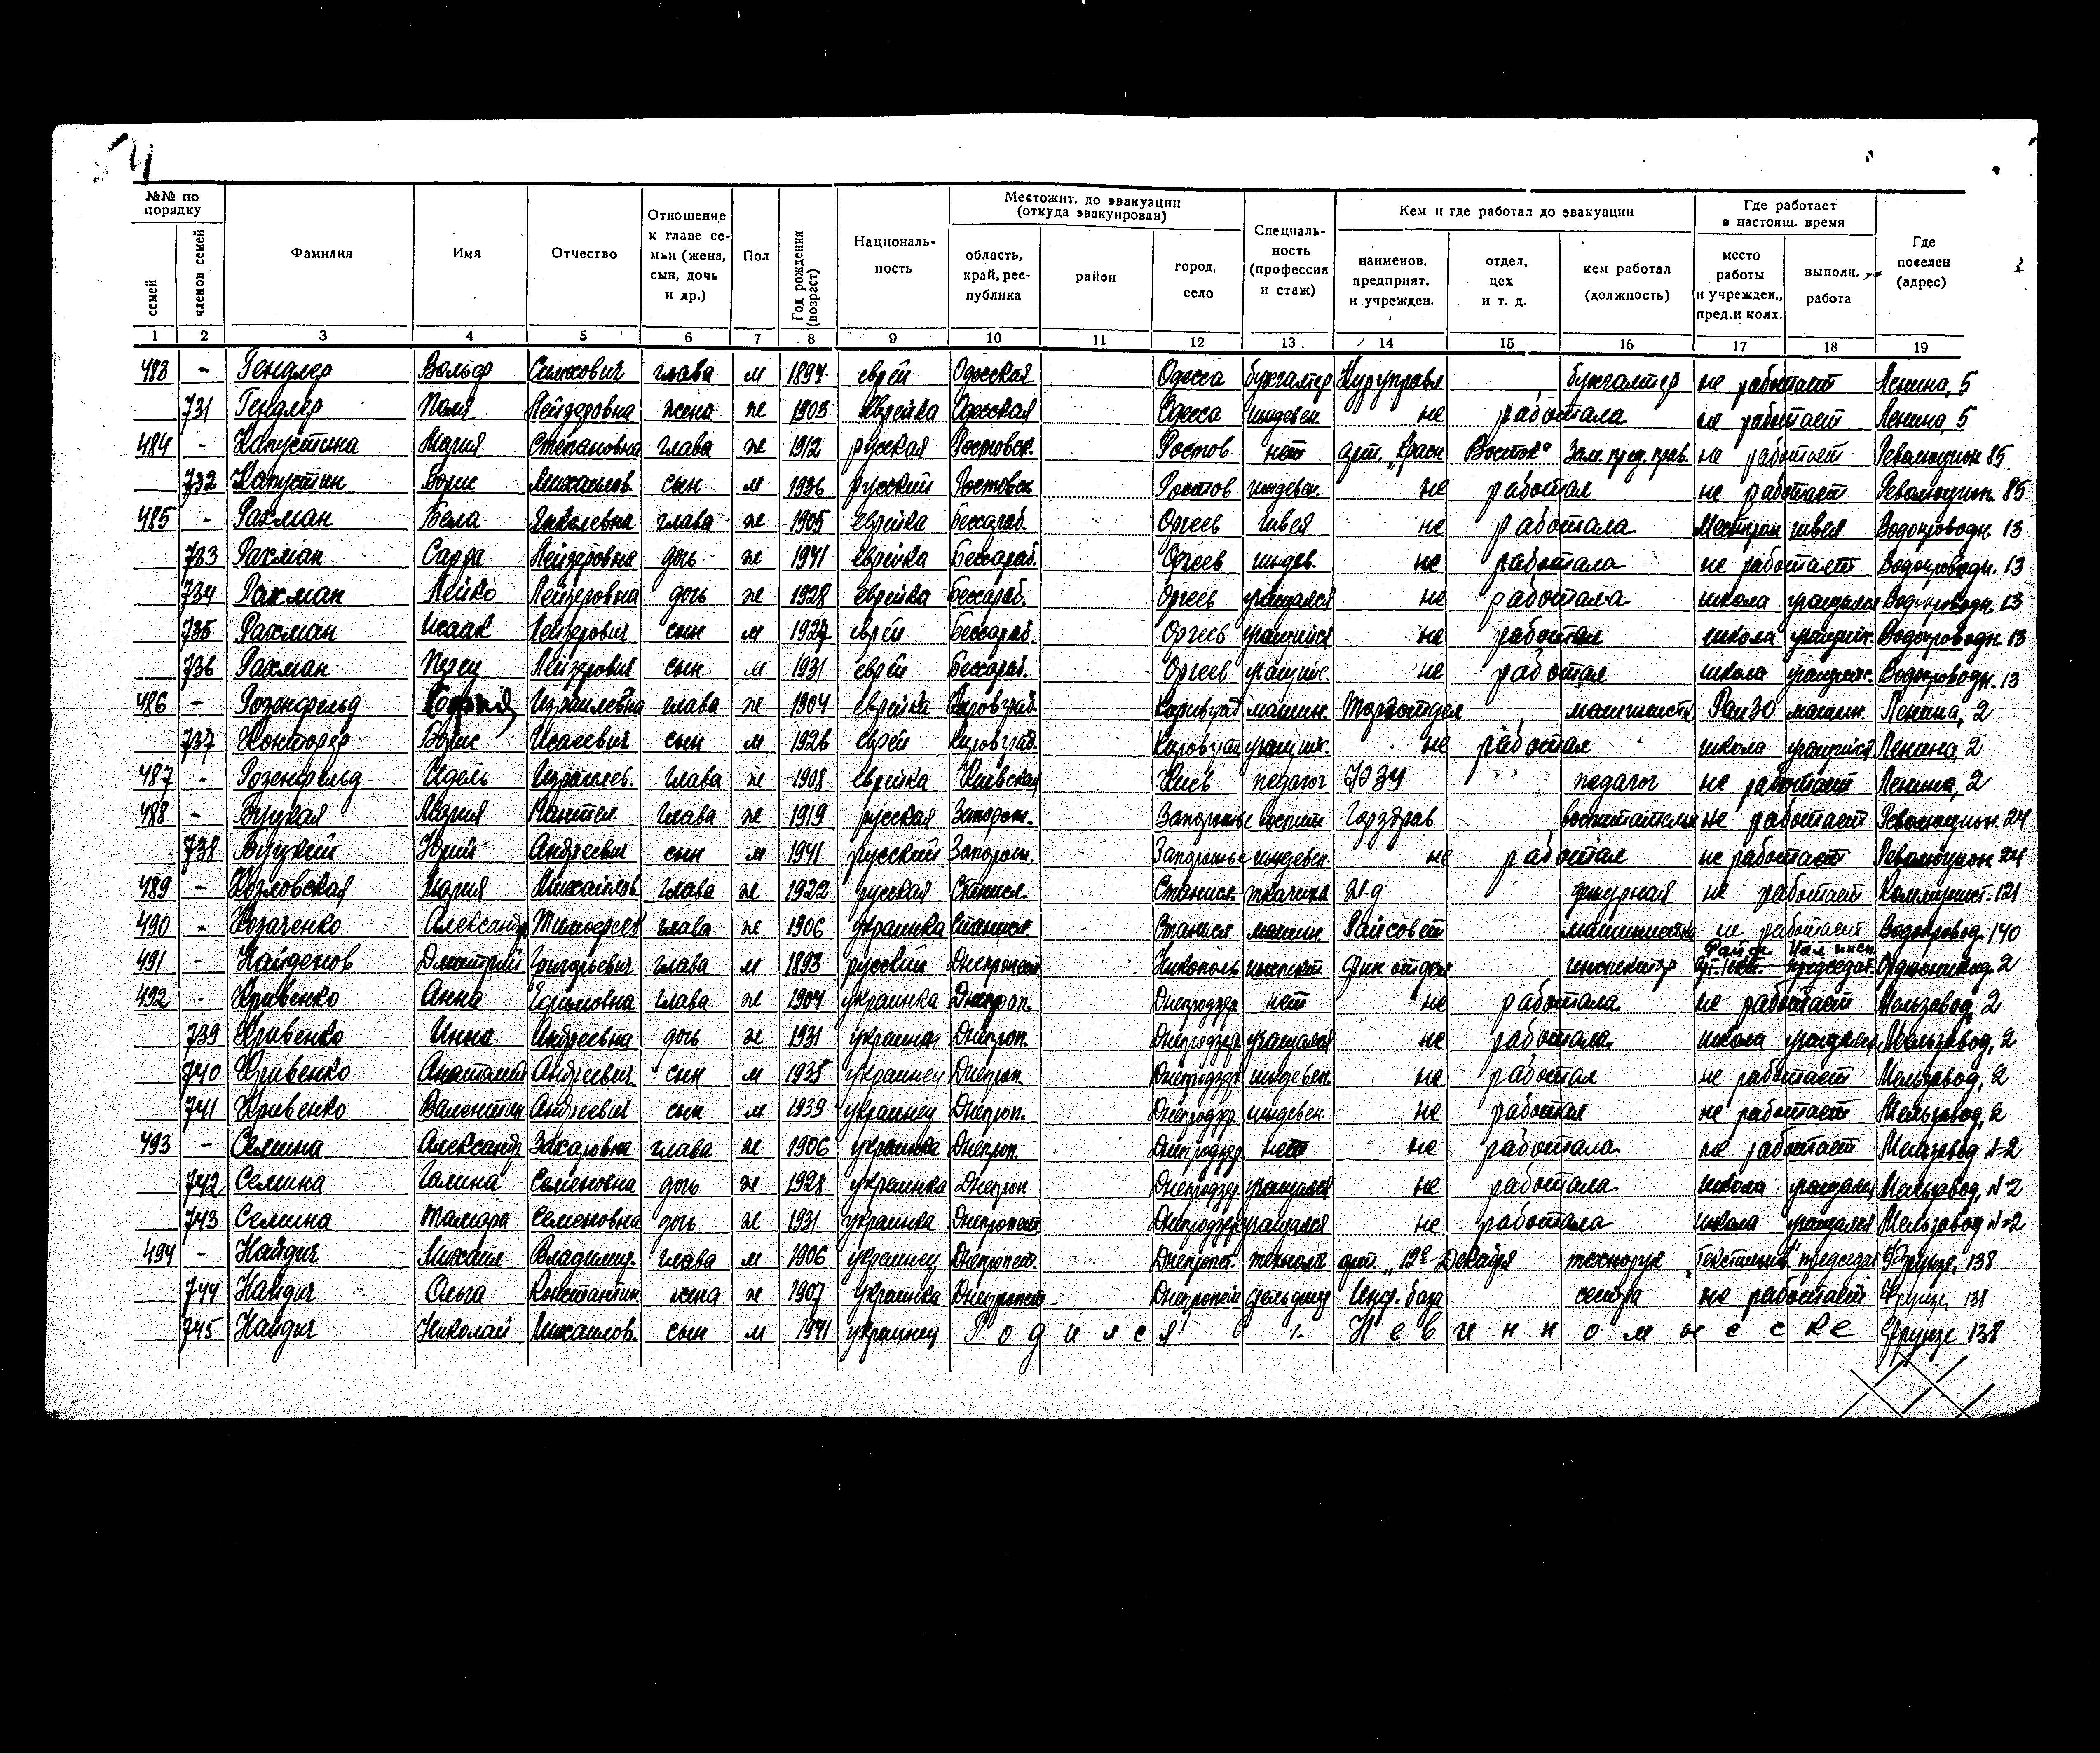 54
№№ по порядку
семей
членов семей
Фамилия
Имя
Отчество
Отношение к главе се-мьи (жена, сын, дочь и др.)
Пол
Год рождения (возраст)
Националь-ность
Местожит. до эвакуации (откуда эвакуирован)
область, край, рес-публика
район
город, село
Специаль-ность (профессия и стаж)
Кем и где работал до эвакуации
наименов. предприят. и учрежден.
отдел, цех и т. д.
кем работал (должность)
Где работает в настоящ. время
место работы и учрежден., пред. и колх.
выполн. работа
Где поселен (адрес)
1 2 3 4 5 6 7 8 9 10 11 12 13 14 15 16 17 18 19
483 - Гендлер Вольф глава м 1897 еврей Одесская Одесса бухгалтер Курупровл бухгалтер не работает Ленина, 5
731 Гендлер Поля Лейзеровна жена ж 1903 еврейка Одесская Одесса иждевен. не работала не работает Ленина, 5
484 - Капустина Мария Степановна глава ж 1912 русская Ростовск. Ростов нет арт. „Красн Восток" Зам. пред. прав. не работает Революцион 85
732 Капустин Борис Михайлов. сын м 1936 русский Ростовск Ростов иждевен. не работал не работает Революцион. 85
485 - Рахман Бела Янкелевна глава ж 1905 еврейка Бессараб. Оргеев швея не работала Местпром швея Водопроводн. 13
733 Рахман Сарра Лейзеровна дочь ж 1941 еврейка Бессараб. Оргеев иждев. не работала не работает Водопроводн. 13
734 Рахман Лейко Лейзеровна дочь ж 1928 еврейка Бессараб. Оргеев учащаяся не работала школа учащаяся Водопроводн. 13
735 Рахман Исаак Лейзерович сын м 1927 еврей Бессараб. Оргеев учащийся не работал школа учащийс. Водопроводн. 13
736 Рахман Перец Лейзерович сын м 1931 еврей Бессараб. Оргеев учащийс. не работал школа учащийс. Водопроводн. 13
486 - Розенфельд Израиловна глава ж 1904 еврейка Кировград. Кировград машин. Торготдел машинистк РайЗО машин. Ленина, 2
737 Конторер Борис Исаевич сын м 1926 еврей Кировград. Кировград учащийс. не работал школа учащийся Ленина, 2
487 - Розенфельд Идель Израилев. глава ж 1908 еврейка Киевская Киев педагог педагог не работает Ленина, 2
488 - Буцкая Мария Пантел. глава ж 1919 русская Запорож. Запорожье воспит Горздрав воспитательн не работает Революцион. 24
738 Буцкий Юрий Андреевич сын м 1941 русский Запорож. Запорожье иждевен. не работал не работает Революцион 24
489 - Козловская Мария Михайлов. глава ж 1922 русская Станисл. Станисл. ткачиха дежурная не работает Коммунист. 121
490 - Козаченко Александр Тимофеев глава ж 1906 украинка Станисл. Станисл машин. Райсовет машинистка не работает Водопровод. 140
491 - Найденов Дмитрий Григорьевич глава м 1893 русский Днепропет. Никополь инспект. Фин отдел инспектор Райфо Нал. инсп. председат. Орджоникид. 2
492 - Кривенко Анна глава ж 1904 украинка Днепроп. Днепродзер. нет не работала не работает Мельзавод, 2
739 Кривенко Инна Андреевна дочь ж 1931 украинка Днепроп. Днепродзер. учащаяся не работала школа учащаяся Мельзавод, 2
740 Кривенко Анатолий Андреевич сын м 1935 украинец Днепроп Днепродзер. иждевен. не работал не работает Мельзавод, 2
741 Кривенко Валентин Андреевич сын м 1939 украинец Днепроп. Днепродзер. иждевен. не работал не работает Мельзавод, 2
493 - Семина Александр Захаровна глава ж 1906 украинка Днепроп. Днепродзер. нет не работала не работает Мельзавод №2
742 Семина Галина Семеновна дочь ж 1928 украинка Днепроп Днепродзер. учащаяся не работала школа учащаяся Мельзавод, №2
743 Семина Тамара Семеновна дочь ж 1931 украинка Днепропет. Днепродзер учащаяся не работала школа учащаяся Мельзавод №2
494 - Найдич Михаил Владимир. глава м 1906 украинец Днепропет. Днепропет. технолог арт. „12е Декабря технорук „Текстильщик" председат Фрунзе, 138
744 Найдич Ольга Константин. жена ж 1907 украинка Днепропет. Днепропет фельдшер Инф. база сестра не работает Фрунзе, 138
745 Найдич Николай Михайлов. сын м 1941 украинец Родился в г. Невинномысске Фрунзе 138